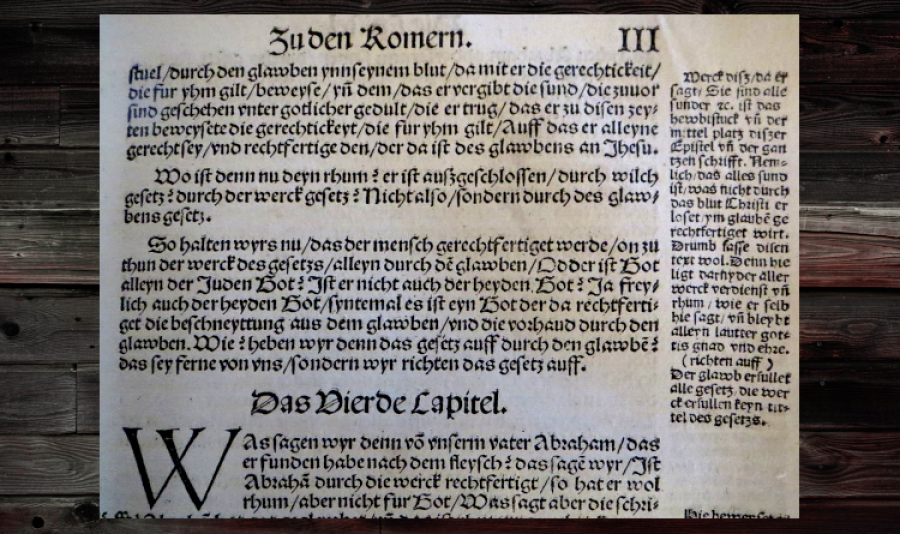 Zu den Romern.
III
stuel/durch den glawben ynn seynem blut/da mit er die gerechtickeit/
die fur yhm gilt/beweyse/vñ dem/das er vergibt die sund/die zuuor
sind geschehen vnter gotlicher gedult/die er trug/das er zu disen zey-
ten beweysete die gerechtickeyt/die fur yhm gilt/Auff das er alleyne
gerecht sey/vnd rechtfertige den/der da ist des glawbens an Jhesu.
Wo ist denn nu deyn rhum? er ist auszgeschlossen/durch wilch
gesetz? durch der werck gesetz? Nicht also/sondern durch des glaw-
bens gesetz.
So halten wyrs nu/das der mensch gerechtfertiget werde/on zu
thun der werck des gesetzs/alleyn durch dē glawben/Odder ist Got
alleyn der Juden Got? Ist er nicht auch der heyden Got? Ja frey-
lich auch der heyden Got/syntemal es ist eyn Got der da rechtferti-
get die beschneyttung aus dem glawben/vnd die vorhaud durch den
glawben. Wie? heben wyr denn das gesetz auff durch den glawbē?
das sey ferne von vns/sondern wyr richten das gesetz auff.
Das Vierde Capitel.
WAs sagen wyr denn vō vnserm vater Abraham/das
er funden habe nach dem fleysch? das sagē wyr/Ist
Abrahā durch die werck rechtfertigt/so hat er wol
rhum/aber nicht fur Got/Was sagt aber die schri-
Merck disz/da er
sagt/Sie sind alle
sunder &c. ist das
hewbtstuck vñ der
mittel platz diszer
Epistel vñ der gan
tzen schrifft. Nem-
lich/das alles sund
ist/was nicht durch
das blut Christi er
loset/ym glaubē ge
rechtfertiget wirt.
Drumb fasse disen
text wol. Denn hie
ligt darnyder aller
werck verdienst vñ
rhum/wie er selb
hie sagt/vñ bleybt
alleyn lautter got-
tis gnad vnd ehre.
(richten auff)
Der glawb erfullet
alle gesetz, die wer
ck erfullen keyn tit-
tel des gesetzs.